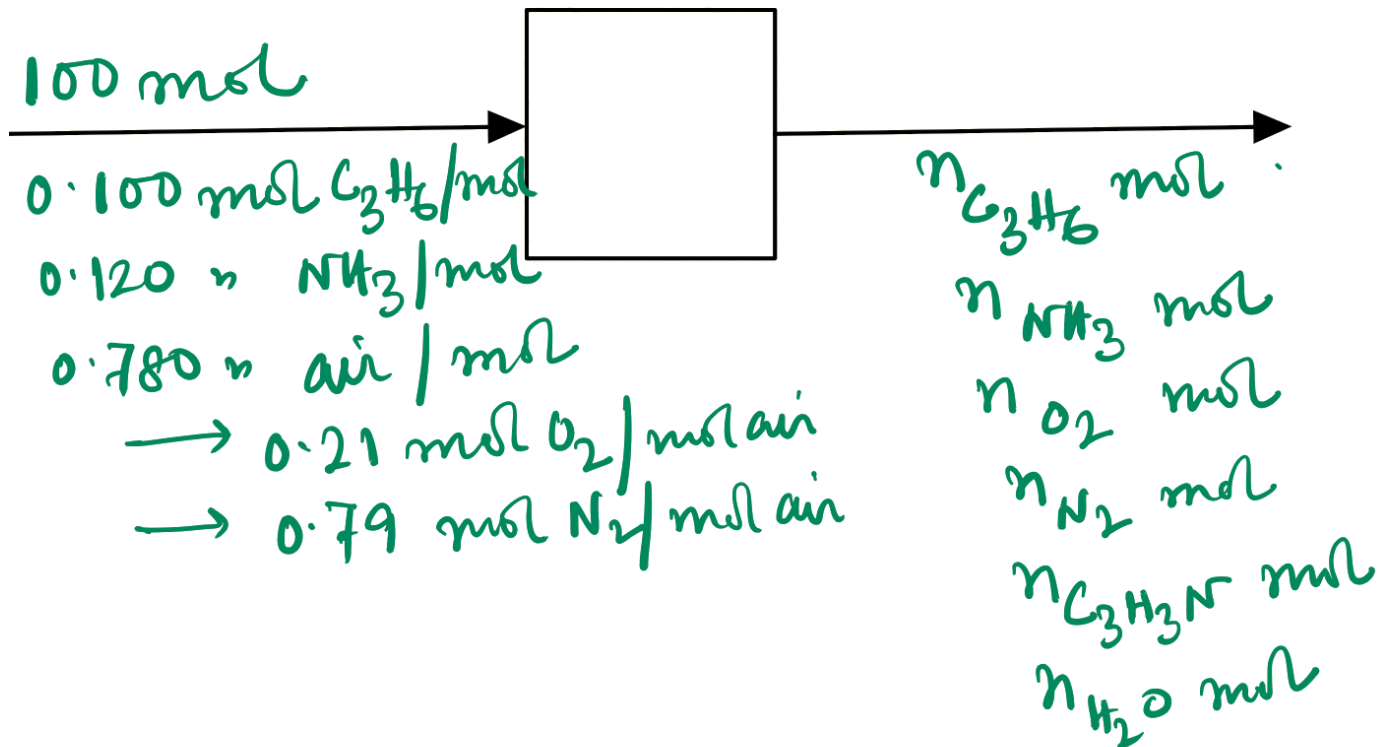 100 mol
0.100 mol C₃H₆/mol
0.120 " NH₃/mol
0.780 " air/mol
→ 0.21 mol O₂/mol air
→ 0.79 mol N₂/mol air
n_C₃H₆ mol
n_NH₃ mol
n_O₂ mol
n_N₂ mol
n_C₃H₃N mol
n_H₂O mol